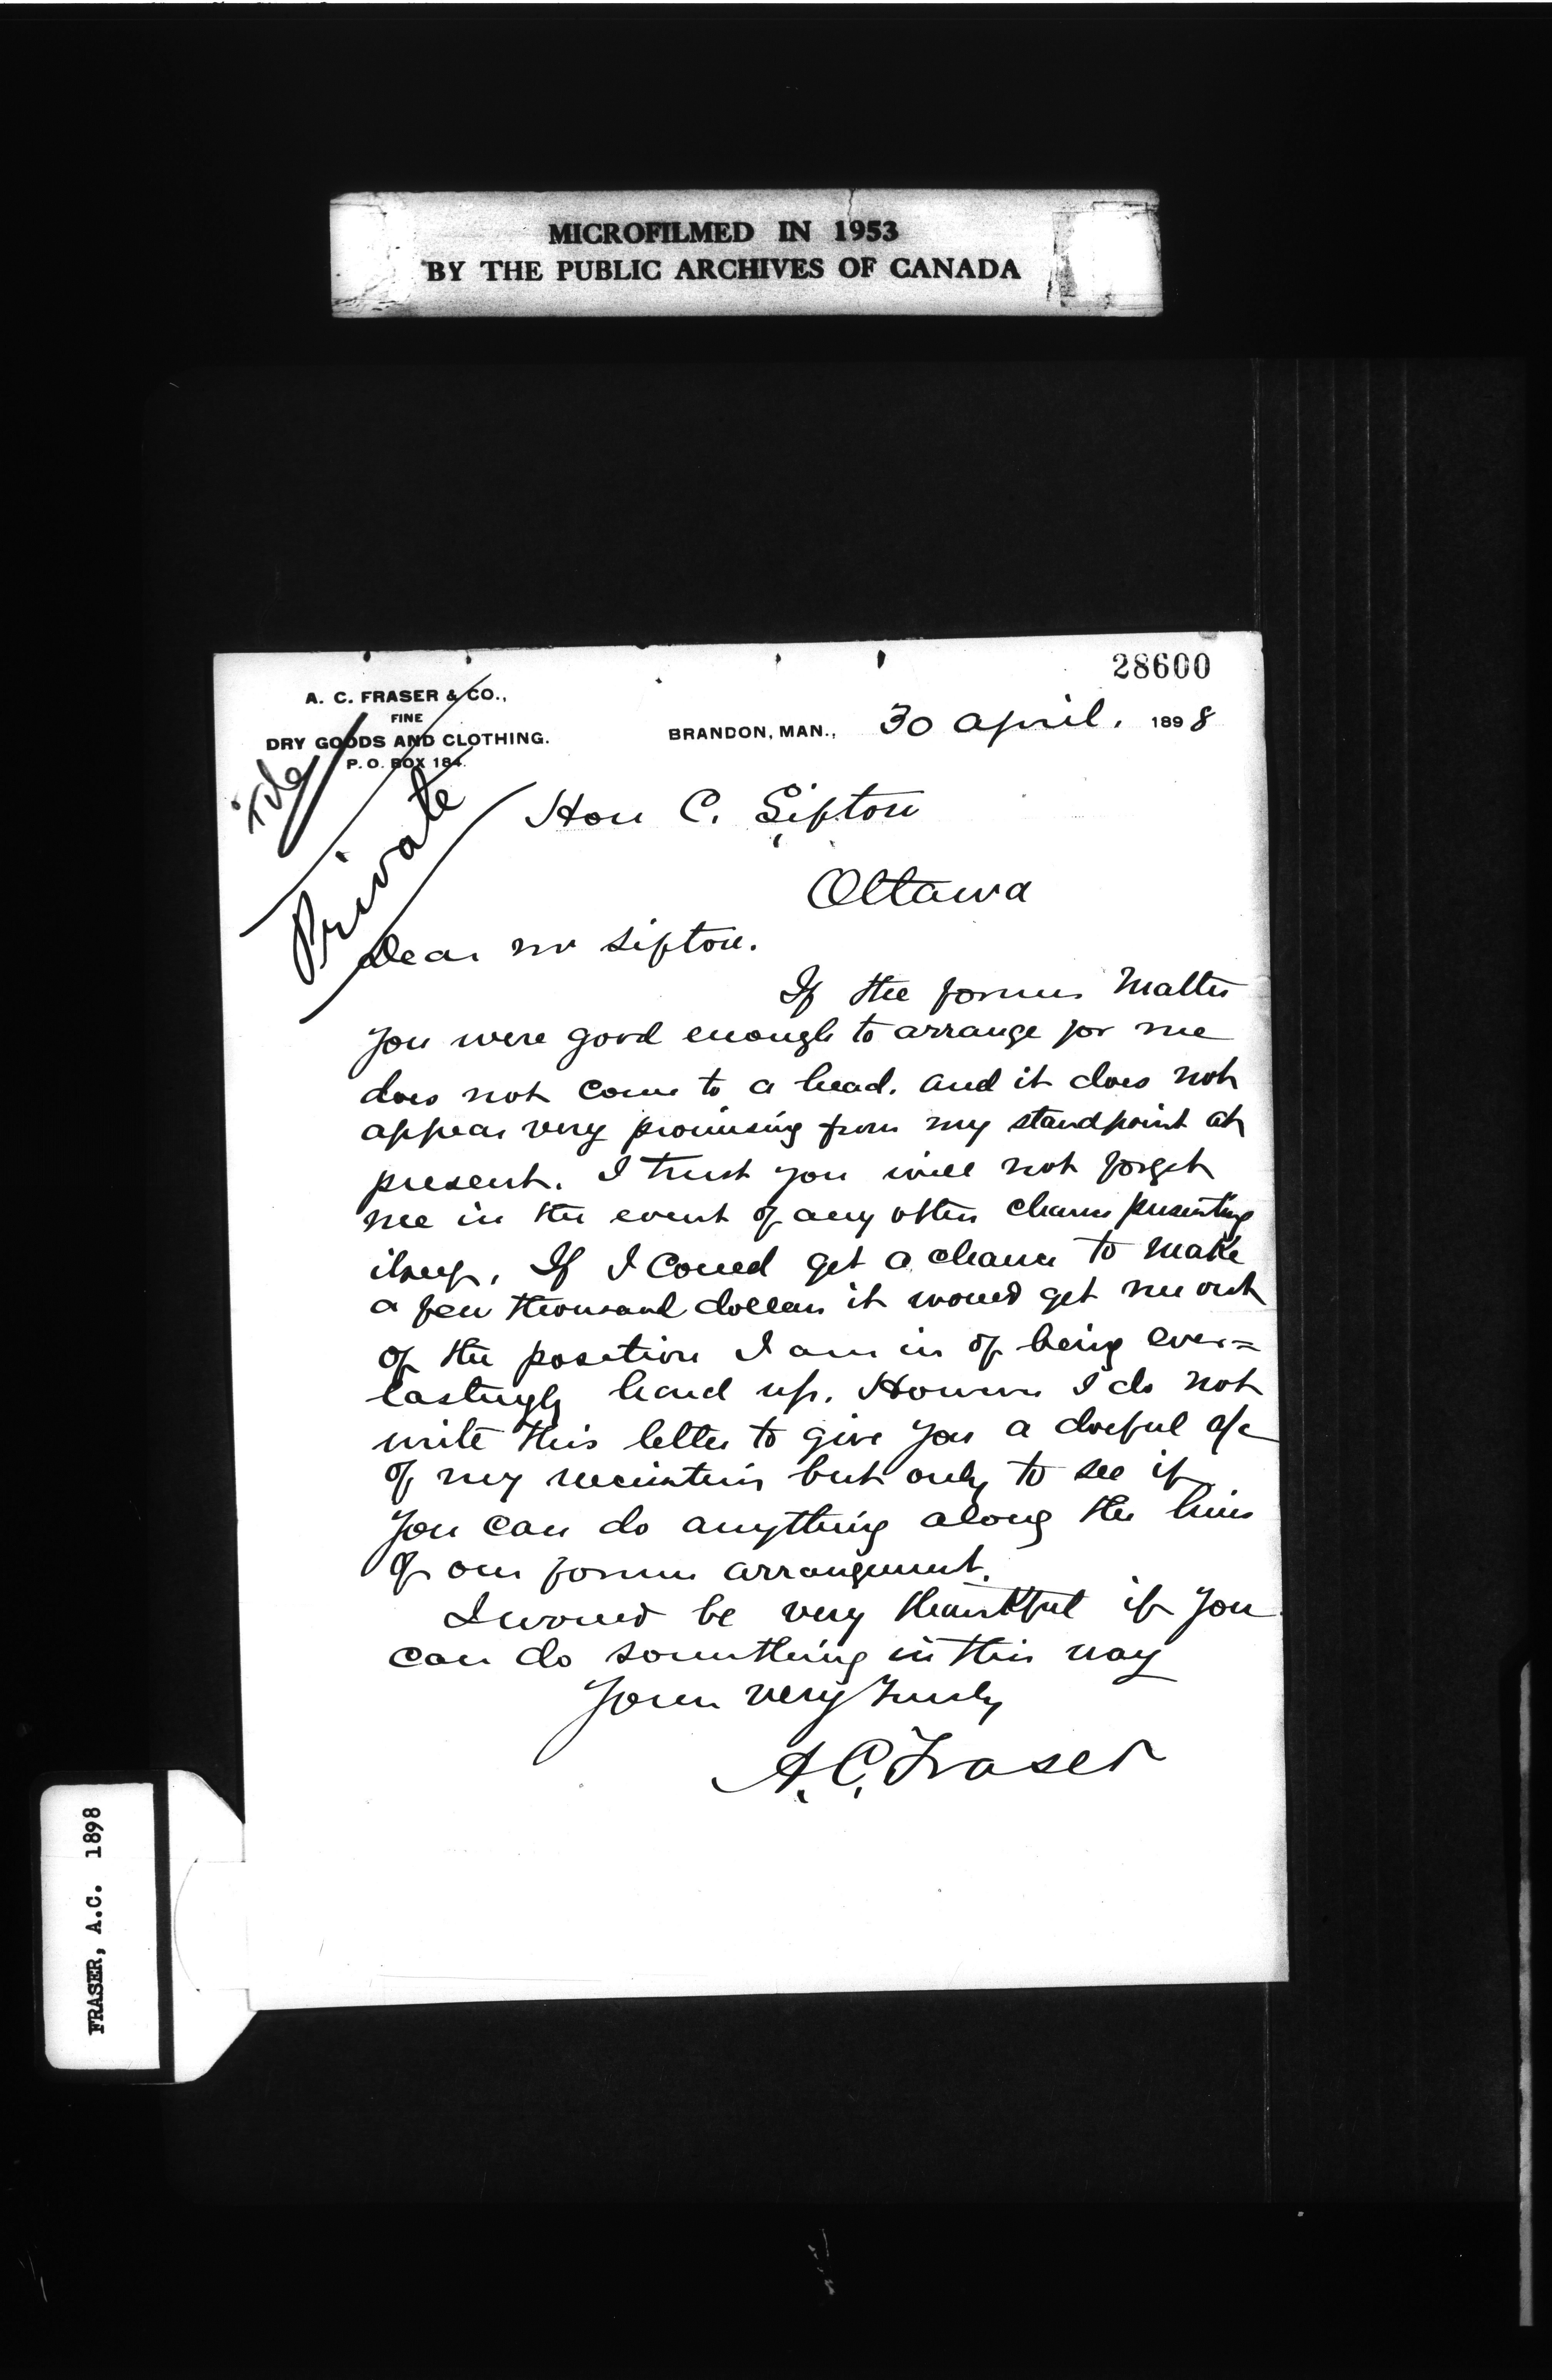 MICROFILMED IN 1953
BY THE PUBLIC ARCHIVES OF CANADA
28600
A. C. FRASER & CO.,
FINE
DRY GOODS AND CLOTHING.
P. O. BOX 184.
BRANDON, MAN., 30 April. 1898
File
Private
Hon C. Sifton
Ottawa
Dear Mr Sifton.
If the former Matter
you were good enough to arrange for me
does not come to a head. and it does not
appear very promising from my standpoint at
present. I trust you will not forget
me in the event of any other chance presenting
itself. If I could get a chance to make
a few thousand dollars it would get me out
of the position I am in of being ever=
lastingly hard up. However I do not
write this letter to give you a doleful a/c
of my but only to see if
you can do anything along the lines
of our former arrangement.
I would be very thankful if you
can do something in this way
Yours very truly
A. C. Fraser
FRASER, A.C. 1898